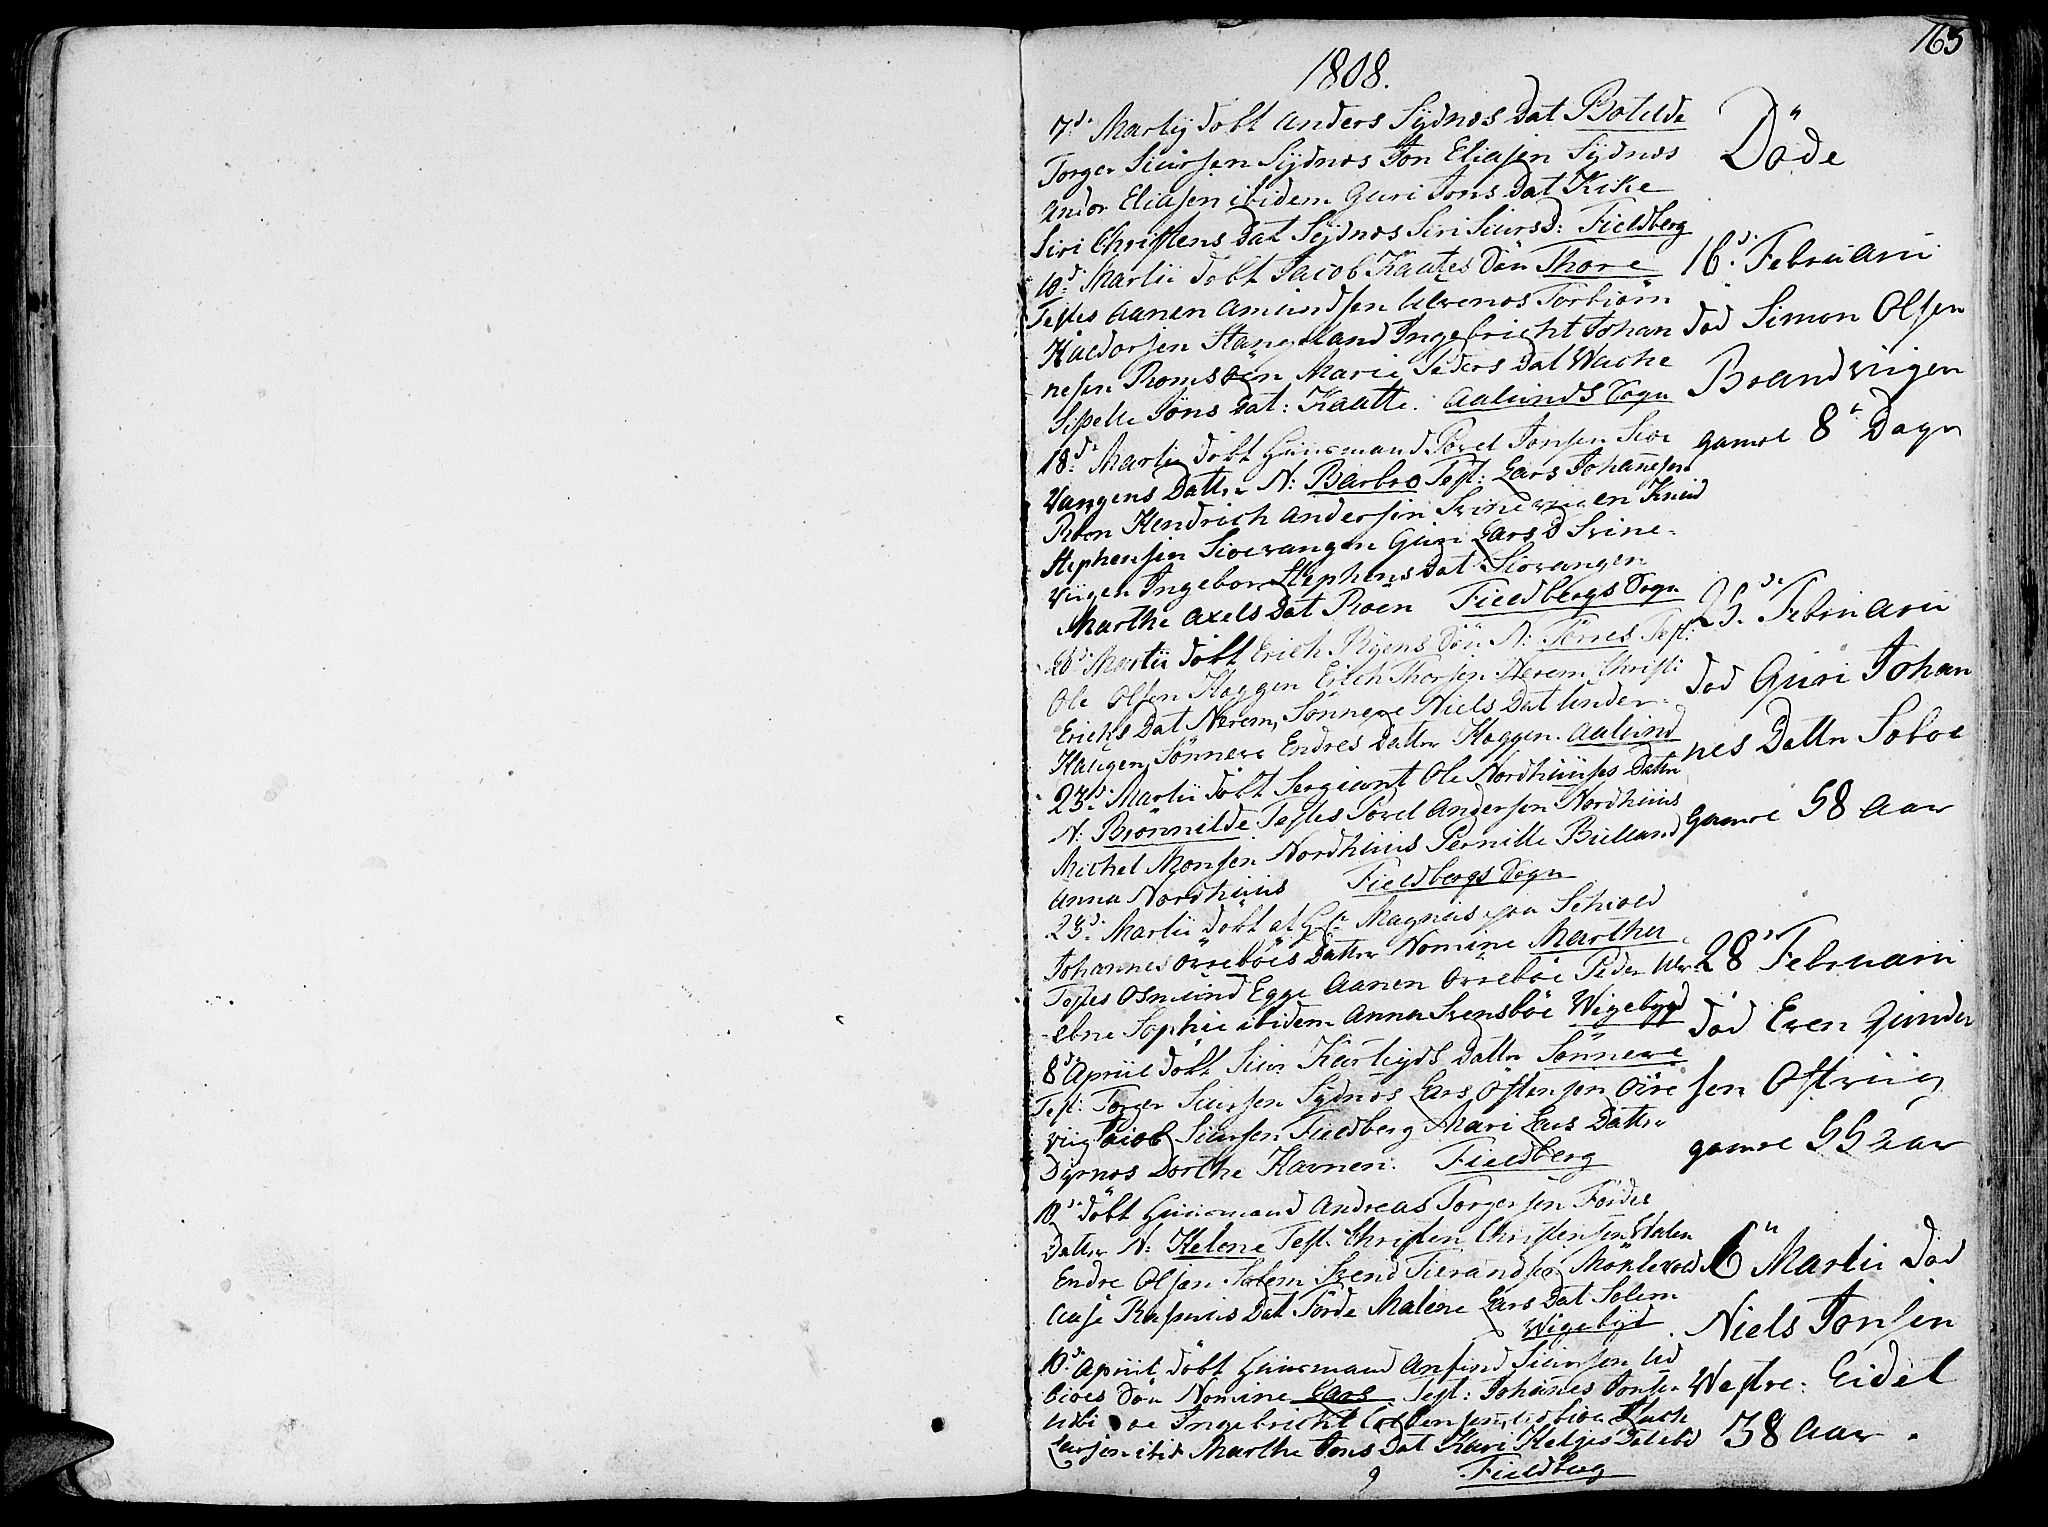 163
1808.
7d. Martij døbt Anders Sydnæs Dat Botelde
Torger Siursen Sydnæs Jon Eliasen Sydnæs
Andor Eliasen ibidem Guri Jons Dat Kike
Siri Christens Dat Sydnæs Siri Siursd: Fieldberg
10d. Martii døbt Jacob Kaates Søn Thore
Testes Aanen Amundsen Ulvenos Torbiørn
Haldorsen Stangeland Ingebricht Johan
nesen Romsøen Marie Peders Dat Wache
Siselle Jons Dat: Kaatte. Aalunds Sogn
18d. Martii døbt Huusmand Povel Jonsen Sioe
Vangens Datter N: Barbro Test: Lars Johannesen
Roen Hendrich Andersen Svinevigen Knud
Stephensen Sioevangen Guri Lars D Svine-
viigen Ingebor Stephens Dat Siovangen
Marthe Axels Dat Roen Fieldbergs Sogn
20d. Martii døbt Erich Ryens Søn N: Torres Test:
Ole Olsen Haggen Erich Thorsen Nerem Christi
Erichs Dat Nerem, Sønneve Niels Dat under-
Haugen Sønneve Endres Datter Haggen. Aalund
23d. Martii døbt Sergiant Ole Nordhuuses Datter
N: Brønnilde Testes Povel Andersen Nordhuus
Michel Monsen Nordhuus Pernille Bielland
Anna Nordhuus Fieldbergs Sogn
23d. Martii døbt af Hr. Magnus paa Schiold
Johannes Ørrebøes Datter Nomine Martha
Testes Osmund Egge Aanen Ørrebøe Peder
ebne Sophie ibidem Anna Svensbøe Wigebygd
8d. Apriil døbt Siur Hartvigs Datter Sønneve
Test: Torger Siursen Sydnæs Lars Østensen Øre
viig Jacob Siursen Fieldberg Mari Lars Datter
Dyrnos Dorthe Havnen: Fieldberg
10d. døbt Huusmand Andreas Torgersen Førdes
Datter N: Helene Test. Christen Christensen Stolen
Endre Olsen Solem Svend Tierandsen Møklevold
Aase Rasmus Dat Førde Malene Lars Dat Solem
Wigebyd.
10d. Apriil døbt Huusmand Anfind Siursen Ud
bioes Søn Nomine Lars Test: Johannes Jonsen
Udbioe Ingebricht Colbensen, Udbioe Isach
Larsen ibid Marthe Jons Dat Kari Helges Dat ibd
Fieldberg
Døde
16d. Februarii
død Simon Olsen
Brandviigen
gamel 8te Dage
25d. Februarii
død Guri Johan
nes Datter Søboe
gamel 58 Aar
28d Februarii
død Even Gunder
sen Ostviig
gamel 55 aar
6te Martii død
Niels Jonsen
Westre: Eidet
38 Aar.